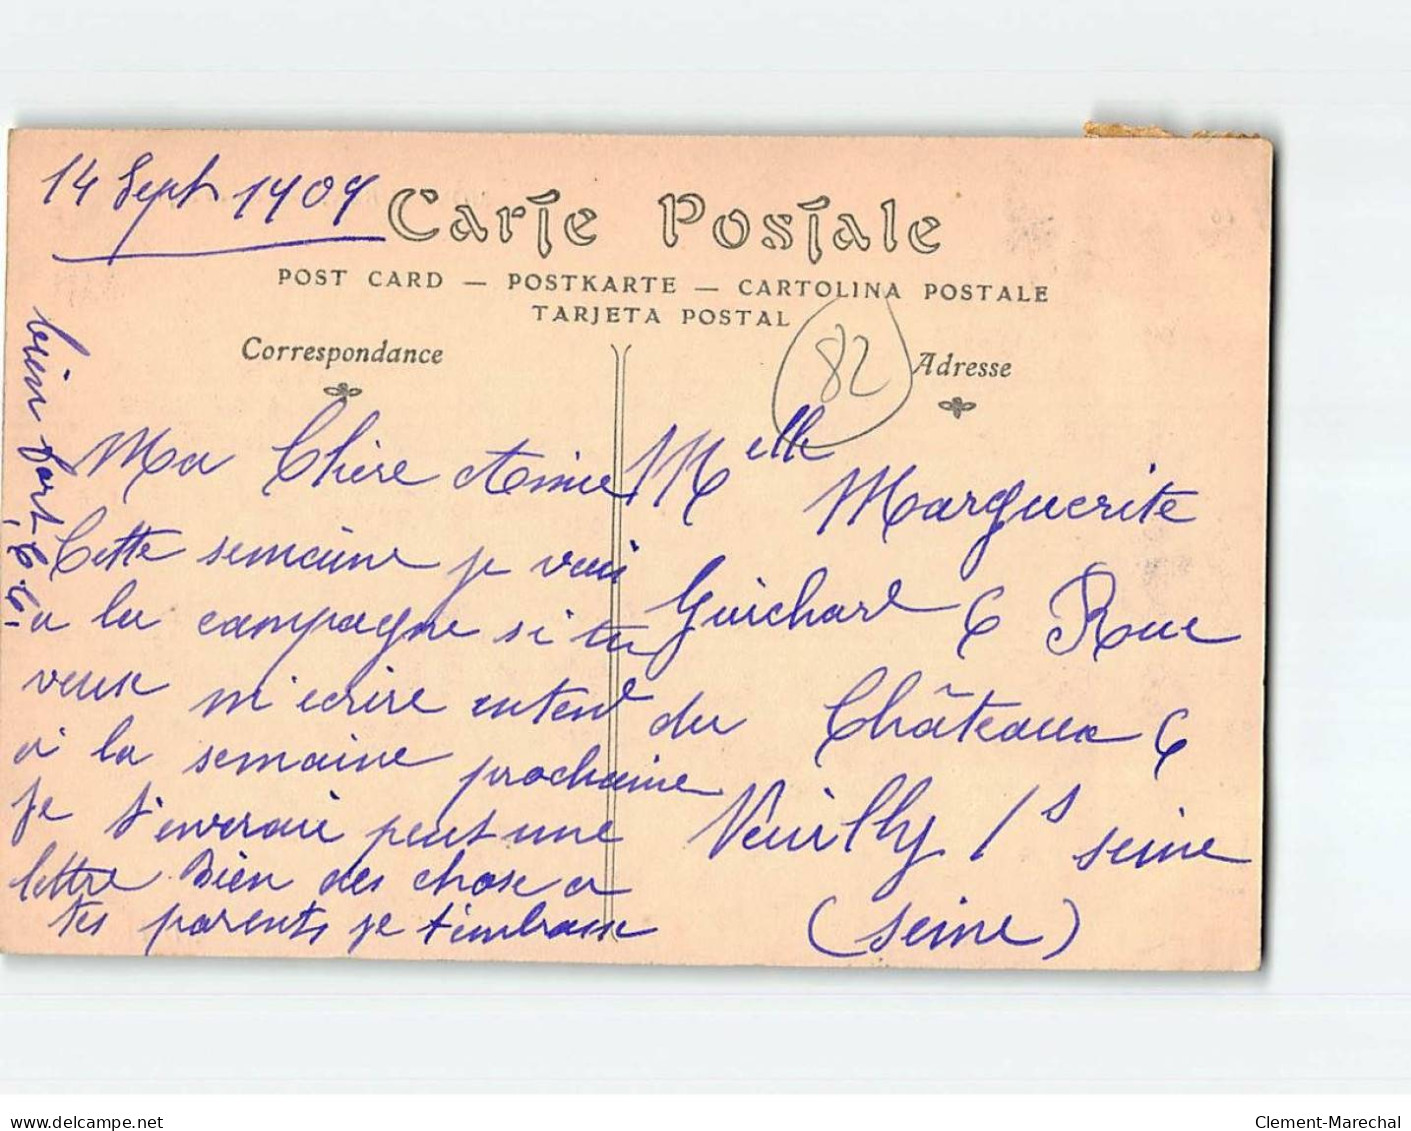 14 Sept 1909
Carte Postale
POST CARD — POSTKARTE — CARTOLINA POSTALE
TARJETA POSTAL
Correspondance
82
Adresse
Ma Chère Amie
Cette semaine je vais
a la campagne si tu
veux m'ecrire entend
à la semaine prochaine
je t'enverai peut une
lettre Bien des chose a
tes parents je t'embrasse
bien fort
Melle Marguerite
Guichard 6 Rue
du Châteaux 6
Neuilly /s seine
(seine)
delcampe.net
Clement-Marechal